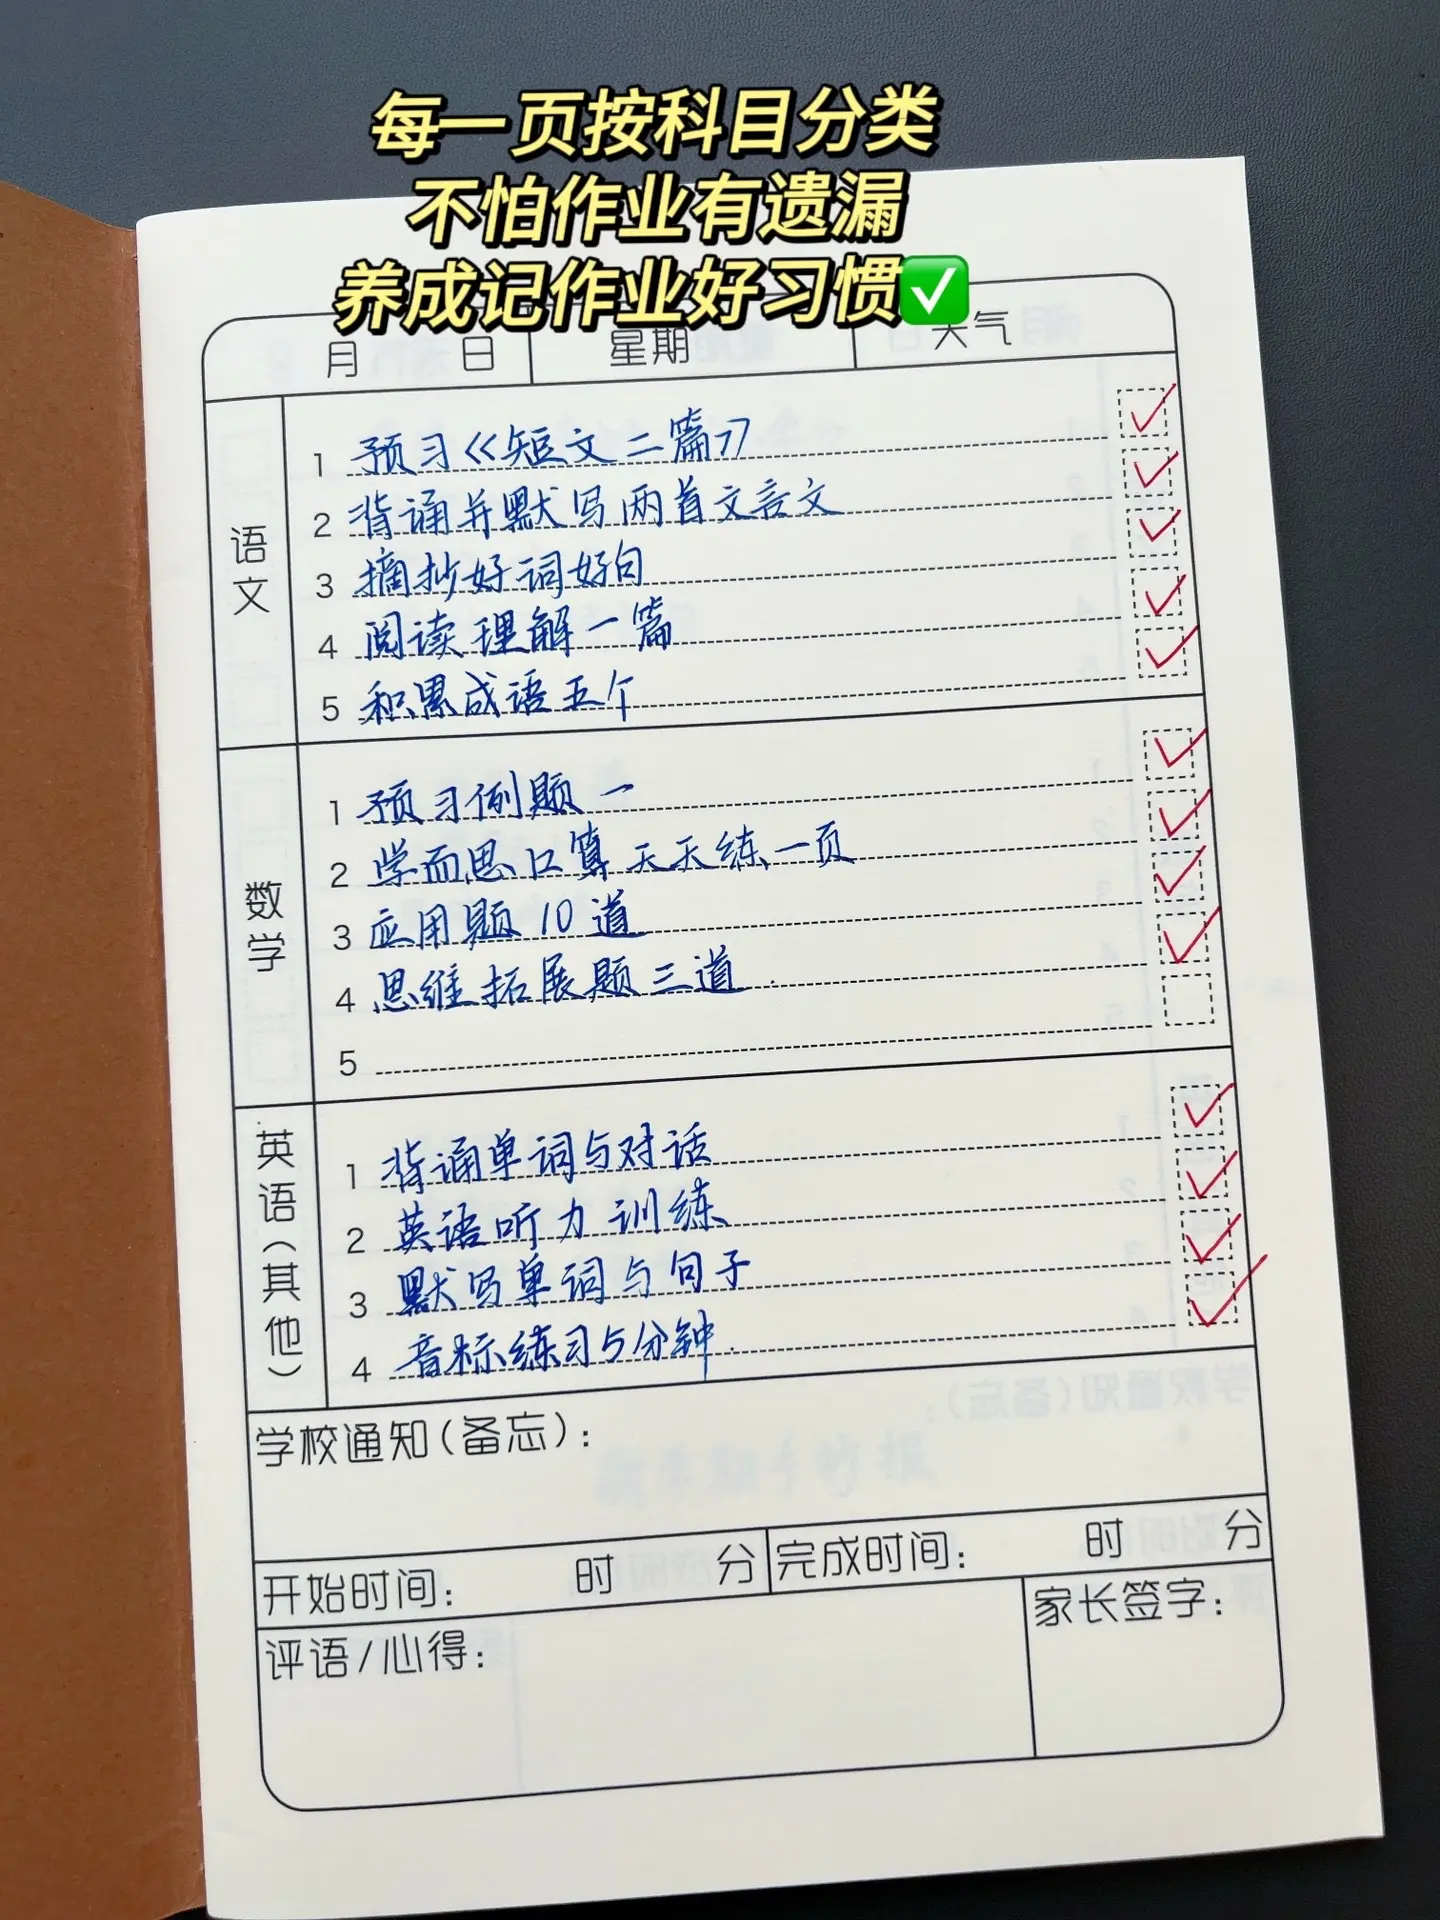 每一页按科目分类
不怕作业有遗漏
养成记作业好习惯✅
月 日 星期 天气
语文
1 预习《短文二篇》
2 背诵并默写两首文言文
3 摘抄好词好句
4 阅读理解一篇
5 积累成语五个
数学
1 预习例题一
2 学而思口算天天练一页
3 应用题10道
4 思维拓展题三道
5
英语(其他)
1 背诵单词与对话
2 英语听力训练
3 默写单词与句子
4 音标练习5分钟
学校通知(备忘):
开始时间: 时 分 完成时间: 时 分
评语/心得: 家长签字: